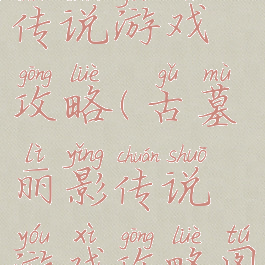 传说游戏
gōng lüè gǔ mù
攻略(古墓
lì yǐng chuán shuō
丽影传说
yóu xì gōng lüè tú
游戏攻略图